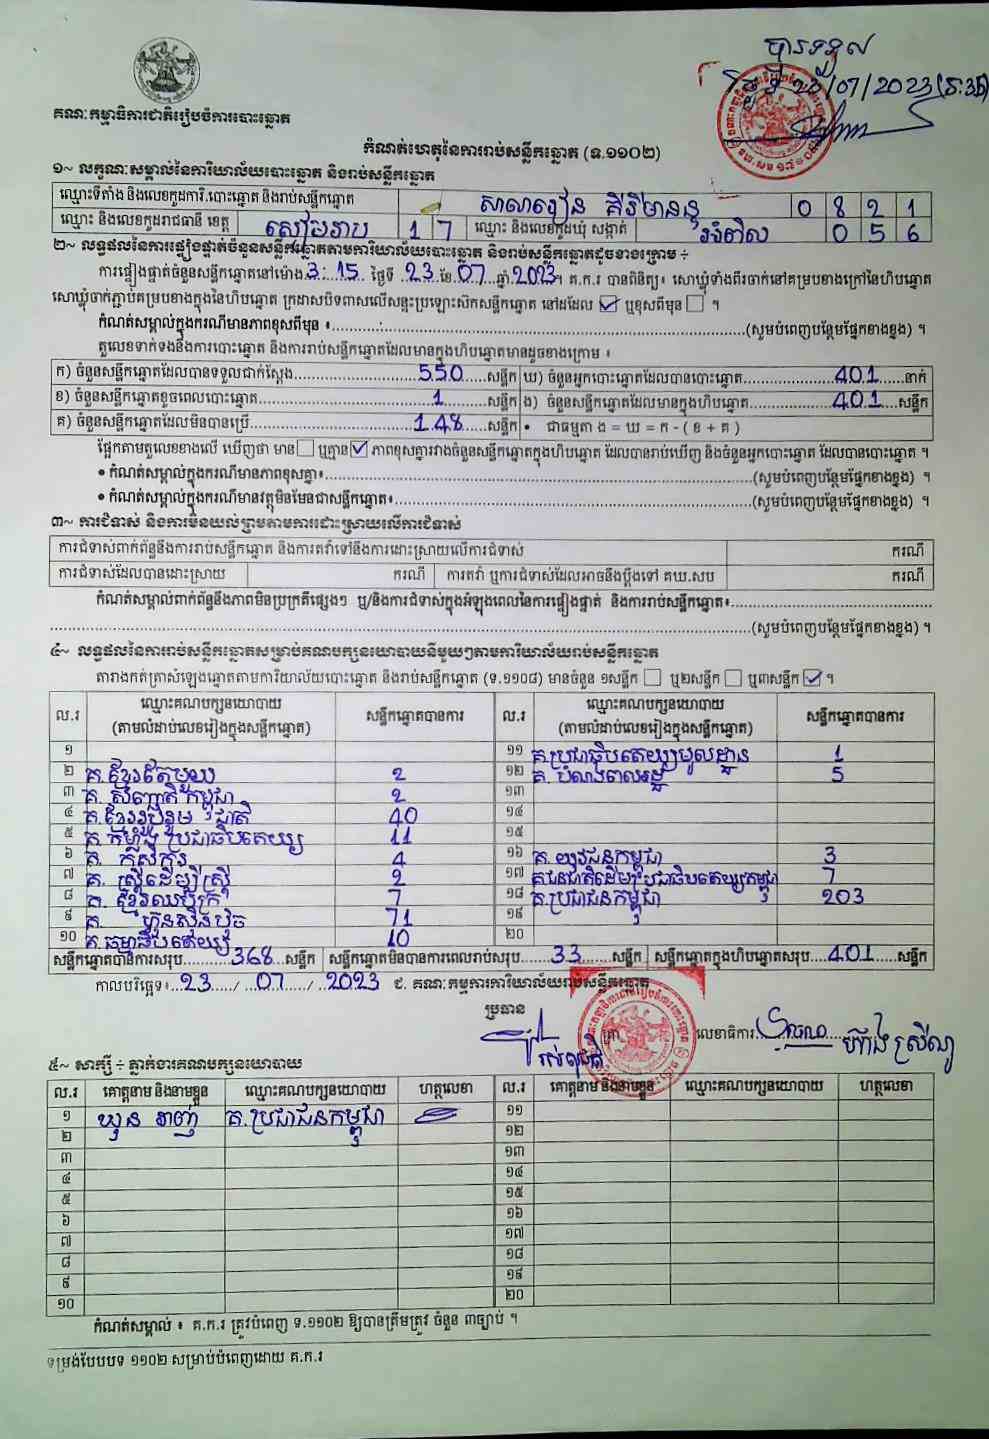 បានទទួល
ថ្ងៃទី 23/07/2023
គណៈកម្មាធិការជាតិរៀបចំការបោះឆ្នោត
កំណត់ហេតុនៃការរាប់សន្លឹកឆ្នោត (ទ.១១០២)
១~ លក្ខណៈសម្គាល់នៃការិយាល័យបោះឆ្នោត និងរាប់សន្លឹកឆ្នោត
ឈ្មោះទីតាំង និងលេខកូដការិ.បោះឆ្នោត និងរាប់សន្លឹកឆ្នោត សាលារៀន គិរីមានន្ទ 0 8 2 1
ឈ្មោះ និងលេខកូដរាជធានី ខេត្ត សៀមរាប 1 7 ឈ្មោះ និងលេខកូដឃុំ សង្កាត់ អំពិល 0 5 6
២~ លទ្ធផលនៃការផ្ទៀងផ្ទាត់ចំនួនសន្លឹកឆ្នោតតាមការិយាល័យបោះឆ្នោត និងរាប់សន្លឹកឆ្នោតដូចខាងក្រោម ÷
ការផ្ទៀងផ្ទាត់ចំនួនសន្លឹកឆ្នោតនៅម៉ោង 3:15 ថ្ងៃទី 23 ខែ 07 ឆ្នាំ 2023។ គ.ក.រ បានពិនិត្យ៖ សោឃ្លុំទាំងពីរចាក់នៅគម្របខាងក្រៅនៃហិបឆ្នោត
សោឃ្លុំចាក់ភ្ជាប់គម្របខាងក្នុងនៃហិបឆ្នោត ក្រដាសបិទពាសលើសន្ទះប្រឡោះស៊កសន្លឹកឆ្នោត នៅដដែល ☑ ឬខុសពីមុន ☐ ។
កំណត់សម្គាល់ក្នុងករណីមានភាពខុសពីមុន ៖........(សូមបំពេញបន្ថែមផ្នែកខាងខ្នង) ។
តួលេខទាក់ទងនឹងការបោះឆ្នោត និងការរាប់សន្លឹកឆ្នោតដែលមានក្នុងហិបឆ្នោតមានដូចខាងក្រោម ៖
ក) ចំនួនសន្លឹកឆ្នោតដែលបានទទួលជាក់ស្តែង 550 សន្លឹក ឃ) ចំនួនអ្នកបោះឆ្នោតដែលបានបោះឆ្នោត 401 នាក់
ខ) ចំនួនសន្លឹកឆ្នោតខូចពេលបោះឆ្នោត 1 សន្លឹក ង) ចំនួនសន្លឹកឆ្នោតដែលមានក្នុងហិបឆ្នោត 401 សន្លឹក
គ) ចំនួនសន្លឹកឆ្នោតដែលមិនបានប្រើ 148 សន្លឹក • ជាធម្មតា ង = ឃ = ក - ( ខ + គ )
ផ្អែកតាមតួលេខខាងលើ ឃើញថា មាន ☐ ឬគ្មាន ☑ ភាពខុសគ្នារវាងចំនួនសន្លឹកឆ្នោតក្នុងហិបឆ្នោត ដែលបានរាប់ឃើញ និងចំនួនអ្នកបោះឆ្នោត ដែលបានបោះឆ្នោត ។
• កំណត់សម្គាល់ក្នុងករណីមានភាពខុសគ្នា៖........(សូមបំពេញបន្ថែមផ្នែកខាងខ្នង) ។
• កំណត់សម្គាល់ក្នុងករណីមានវត្ថុមិនមែនជាសន្លឹកឆ្នោត៖........(សូមបំពេញបន្ថែមផ្នែកខាងខ្នង) ។
៣~ ការជំទាស់ និងការមិនយល់ព្រមតាមការដោះស្រាយលើការជំទាស់
ការជំទាស់ពាក់ព័ន្ធនឹងការរាប់សន្លឹកឆ្នោត និងការតវ៉ាទៅនឹងការដោះស្រាយលើការជំទាស់ ករណី
ការជំទាស់ដែលបានដោះស្រាយ ករណី ការតវ៉ា ឬការជំទាស់ដែលអាចនឹងប្តឹងទៅ គឃ.សប ករណី
កំណត់សម្គាល់ពាក់ព័ន្ធនឹងភាពមិនប្រក្រតីផ្សេងៗ ឬ/និងការជំទាស់ក្នុងអំឡុងពេលនៃការផ្ទៀងផ្ទាត់ និងការរាប់សន្លឹកឆ្នោត៖........
........(សូមបំពេញបន្ថែមផ្នែកខាងខ្នង) ។
៤~ លទ្ធផលនៃការរាប់សន្លឹកឆ្នោតសម្រាប់គណបក្សនយោបាយនីមួយៗតាមការិយាល័យរាប់សន្លឹកឆ្នោត
តារាងកត់ត្រាសំឡេងឆ្នោតតាមការិយាល័យបោះឆ្នោត និងរាប់សន្លឹកឆ្នោត (ទ.១១០៨) មានចំនួន ១សន្លឹក ☐ ឬ២សន្លឹក ☐ ឬ៣សន្លឹក ☑ ។
ល.រ ឈ្មោះគណបក្សនយោបាយ (តាមលំដាប់លេខរៀងក្នុងសន្លឹកឆ្នោត) សន្លឹកឆ្នោតបានការ ល.រ ឈ្មោះគណបក្សនយោបាយ (តាមលំដាប់លេខរៀងក្នុងសន្លឹកឆ្នោត) សន្លឹកឆ្នោតបានការ
១ ១១ គ.ប្រជាធិបតេយ្យមូលដ្ឋាន 1
២ គ.ខ្មែរតែមួយ 2 ១២ គ. បំណងពលរដ្ឋ 5
៣ គ. សញ្ជាតិកម្ពុជា 2 ១៣
៤ គ.ខ្មែររួបរួមជាតិ 40 ១៤
៥ គ. កម្លាំងប្រជាធិបតេយ្យ 11 ១៥
៦ គ. កសិករ 4 ១៦ គ. យុវជនកម្ពុជា 3
៧ គ. ស្ត្រីដើម្បីស្ត្រី 2 ១៧ គ.ជនជាតិដើមប្រជាធិបតេយ្យកម្ពុជា 7
៨ គ. ខ្មែរឈប់ក្រ 7 ១៨ គ.ប្រជាជនកម្ពុជា 203
៩ គ. ហ៊្វុនស៊ិនប៉ិច 71 ១៩
១០ គ.ធម្មាធិបតេយ្យ 10 ២០
សន្លឹកឆ្នោតបានការសរុប 368 សន្លឹក សន្លឹកឆ្នោតមិនបានការពេលរាប់សរុប 33 សន្លឹក សន្លឹកឆ្នោតក្នុងហិបឆ្នោតសរុប 401 សន្លឹក
កាលបរិច្ឆេទ៖ 23 / 07 / 2023 ជ. គណៈកម្មការការិយាល័យរាប់សន្លឹកឆ្នោត
ប្រធាន
ត្រា លេខាធិការ ហ៊ាង ស្រីណូ
៥~ សាក្សី ÷ ភ្នាក់ងារគណបក្សនយោបាយ
ល.រ គោត្តនាម និងនាមខ្លួន ឈ្មោះគណបក្សនយោបាយ ហត្ថលេខា ល.រ គោត្តនាម និងនាមខ្លួន ឈ្មោះគណបក្សនយោបាយ ហត្ថលេខា
១ ឃុន វាញ់ គ.ប្រជាជនកម្ពុជា ១១
២ ១២
៣ ១៣
៤ ១៤
៥ ១៥
៦ ១៦
៧ ១៧
៨ ១៨
៩ ១៩
១០ ២០
កំណត់សម្គាល់ ៖ គ.ក.រ ត្រូវបំពេញ ទ.១១០២ ឱ្យបានត្រឹមត្រូវ ចំនួន ៣ច្បាប់ ។
ទម្រង់បែបបទ ១១០២ សម្រាប់បំពេញដោយ គ.ក.រ